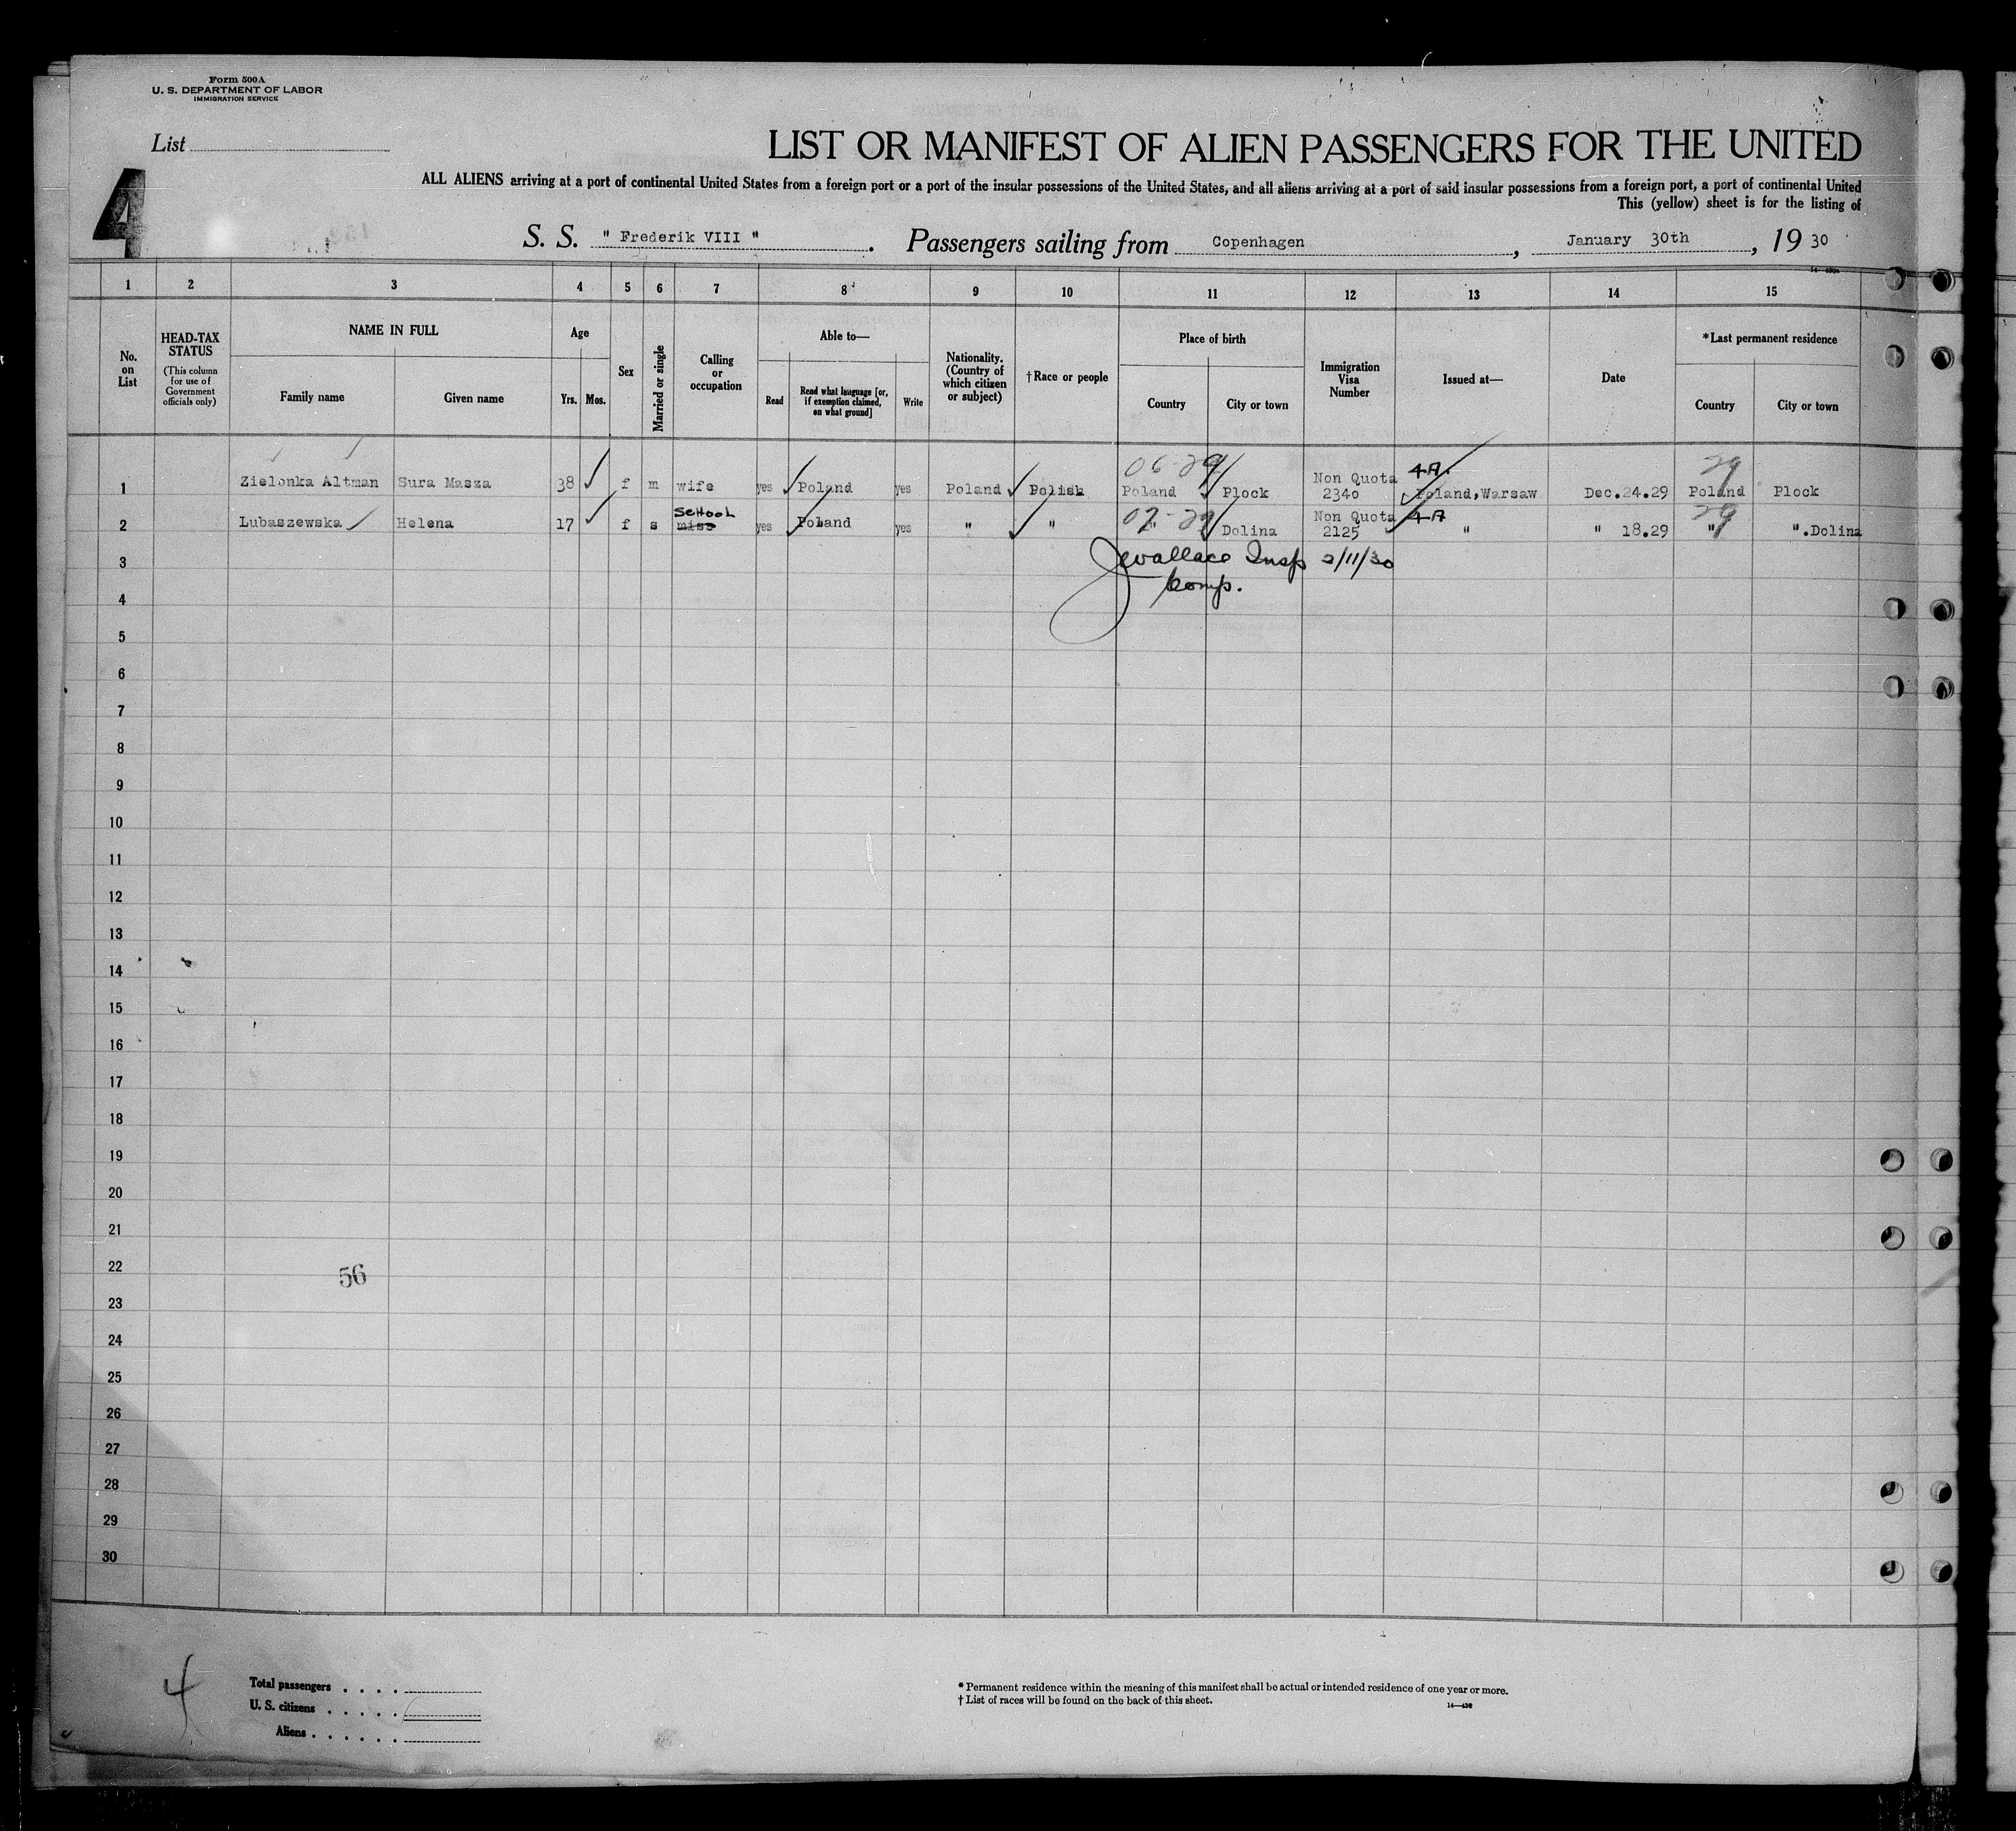 Form 500A
U. S. DEPARTMENT OF LABOR
IMMIGRATION SERVICE
List
4
LIST OR MANIFEST OF ALIEN PASSENGERS FOR THE UNITED
ALL ALIENS arriving at a port of continental United States from a foreign port or a port of the insular possessions of the United States, and all aliens arriving at a port of said insular possessions from a foreign port, a port of continental United
This (yellow) sheet is for the listing of
S. S. " Frederik VIII " . Passengers sailing from Copenhagen , January 30th , 19 30
1 2 3 4 5 6 7 8 9 10 11 12 13 14 15
No. on List
HEAD-TAX STATUS
(This column for use of Government officials only)
NAME IN FULL
Family name Given name
Age
Yrs. Mos.
Sex
Married or single
Calling or occupation
Able to—
Read
Read what language [or, if exemption claimed, on what ground]
Write
Nationality. (Country of which citizen or subject)
†Race or people
Place of birth
Country City or town
Immigration Visa Number
Issued at—
Date
*Last permanent residence
Country City or town
06-29 4A. 29
1 Zielonka Altman Sura Masza 38 f m wife yes Poland yes Poland Polish Poland Plock Non Quota 2340 Poland,Warsaw Dec.24.29 Poland Plock
School 07-29 4A 29
2 Lubaszewska Helena 17 f s miss yes Poland yes " " " Dolina Non Quota 2125 " " 18.29 " ".Dolina
3 JWallace Insp 2/11/30
4 Comp.
5
6
7
8
9
10
11
12
13
14
15
16
17
18
19
20
21
22
56
23
24
25
26
27
28
29
30
4
Total passengers . . . .
U. S. citizens . . . . .
Aliens . . . . . .
* Permanent residence within the meaning of this manifest shall be actual or intended residence of one year or more.
† List of races will be found on the back of this sheet.